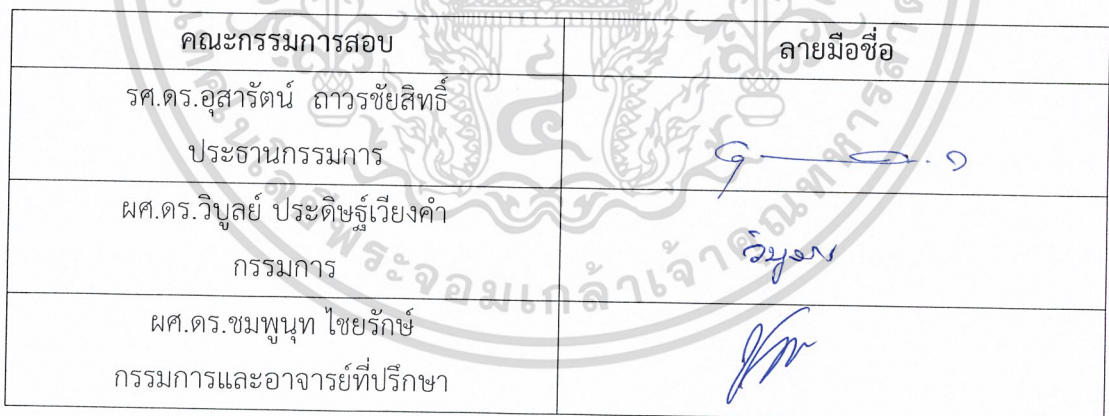 คณะกรรมการสอบ ลายมือชื่อ
รศ.ดร.อุสารัตน์ ถาวรชัยสิทธิ์
ประธานกรรมการ
ผศ.ดร.วิบูลย์ ประดิษฐ์เวียงคำ
กรรมการ วิบูลย์
ผศ.ดร.ชมพูนุท ไชยรักษ์
กรรมการและอาจารย์ที่ปรึกษา
พระจอมเกล้าเจ้าคุณทหารลา